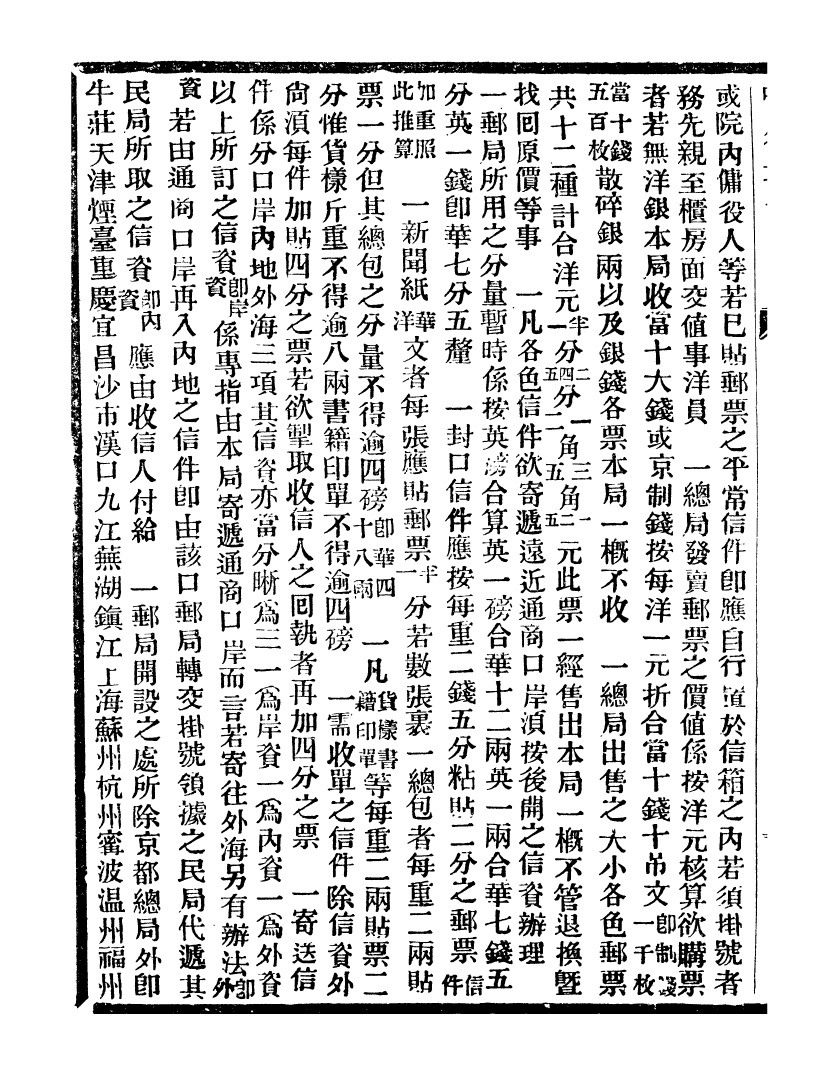 或院內傭役人等若已貼郵票之平常信件卽應自行置於信箱之內若須掛號者
務先親至櫃房面交値事洋員　一總局發賣郵票之價値係按洋元核算欲購票
者若無洋銀本局收當十大錢或京制錢按每洋一元折合當十錢十吊文卽制錢一千枚
當十錢五百枚散碎銀兩以及銀錢各票本局一槪不收　一總局出售之大小各色郵票
共十二種計合洋元半一分二四五分一二角三五角一二五元此票一經售出本局一槪不管退換曁
找回原價等事　一凡各色信件欲寄遞遠近通商口岸湏按後開之信資辦理
一郵局所用之分量暫時係按英磅合算英一磅合華十二兩英一兩合華七錢五
分英一錢卽華七分五釐　一封口信件應按每重二錢五分粘貼二分之郵票信件
加重照此推算　一新聞紙華洋文者每張應貼郵票半一分若數張裹一總包者每重二兩貼
票一分但其總包之分量不得逾四磅卽華四十八兩　一凡貨樣書籍印單等每重二兩貼票二
分惟貨樣斤重不得逾八兩書籍印單不得逾四磅　一需收單之信件除信資外
尙湏每件加貼四分之票若欲掣取收信人之回執者再加四分之票　一寄送信
件係分口岸內地外海三項其信資亦當分晰爲三一爲岸資一爲內資一爲外資
以上所訂之信資卽岸資係專指由本局寄遞通商口岸而言若寄往外海另有辦法卽外
資若由通商口岸再入內地之信件卽由該口郵局轉交掛號領據之民局代遞其
民局所取之信資卽內資應由收信人付給　一郵局開設之處所除京都總局外卽
牛莊天津煙臺重慶宜昌沙市漢口九江蕪湖鎭江上海蘇州杭州甯波溫州福州